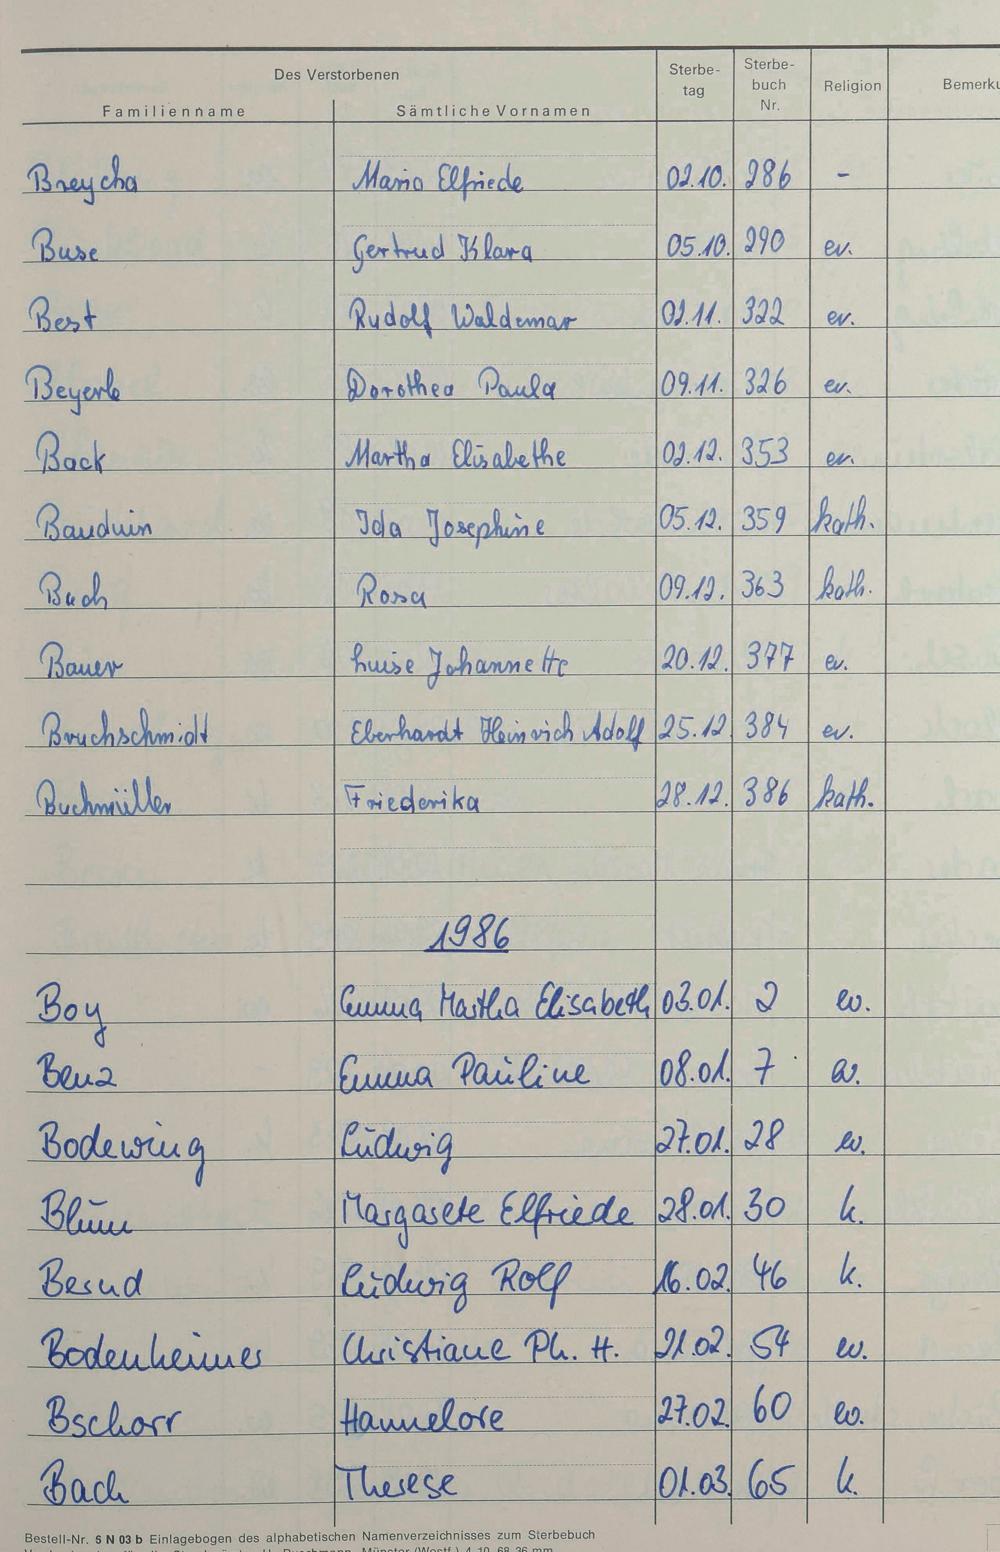 Des Verstorbenen Sterbe- Sterbe-
tag buch Religion
Familienname Sämtliche Vornamen Nr.
Breycha Maria Elfriede 02.10. 286 -
Buse Gertrud Klara 05.10. 290 ev.
Best Rudolf Waldemar 02.11. 322 ev.
Beyerle Dorothea Paula 09.11. 326 ev.
Back Martha Elisabethe 02.12. 353 ev.
Bauduin Ida Josephine 05.12. 359 kath.
Buch Rosa 09.12. 363 kath.
Bauer Luise Johannette 20.12. 377 ev.
Bruchschmidt Eberhardt Heinrich Adolf 25.12. 384 ev.
Buchmüller Friederika 28.12. 386 kath.
1986
Boy Emma Martha Elisabeth 03.01. 2 ev.
Benz Emma Pauline 08.01. 7 ev.
Bodewing Ludwig 27.01. 28 ev.
Blum Margarete Elfriede 28.01. 30 k.
Bernd Ludwig Rolf 16.02. 46 k.
Bodenheimer Christiane Ph. H. 21.02. 54 ev.
Bschorr Hannelore 27.02. 60 ev.
Bach Therese 01.03. 65 k.
Bestell-Nr. 5 N 03 b Einlagebogen des alphabetischen Namenverzeichnisses zum Sterbebuch